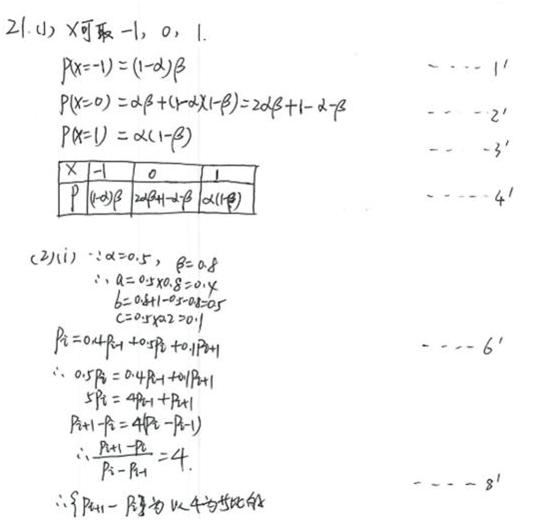 21.(1) X可取 -1, 0, 1.
P(X=-1)=(1-α)β ----1'
P(X=0)=αβ+(1-α)(1-β)=2αβ+1-α-β ----2'
P(X=1)=α(1-β) ----3'
X -1 0 1
P (1-α)β 2αβ+1-α-β α(1-β) -----4'
(2)(i) ∵α=0.5, β=0.8
∴a=0.5×0.8=0.4
b=0.8+1-0.5-0.8=0.5
c=0.5×0.2=0.1
Pi=0.4Pi-1+0.5Pi+0.1Pi+1 ----6'
∴0.5Pi=0.4Pi-1+0.1Pi+1
5Pi=4Pi-1+Pi+1
Pi+1-Pi=4(Pi-Pi-1)
∴(Pi+1-Pi)/(Pi-Pi-1)=4. ----8'
∴{Pi+1-Pi}为以4为公比的